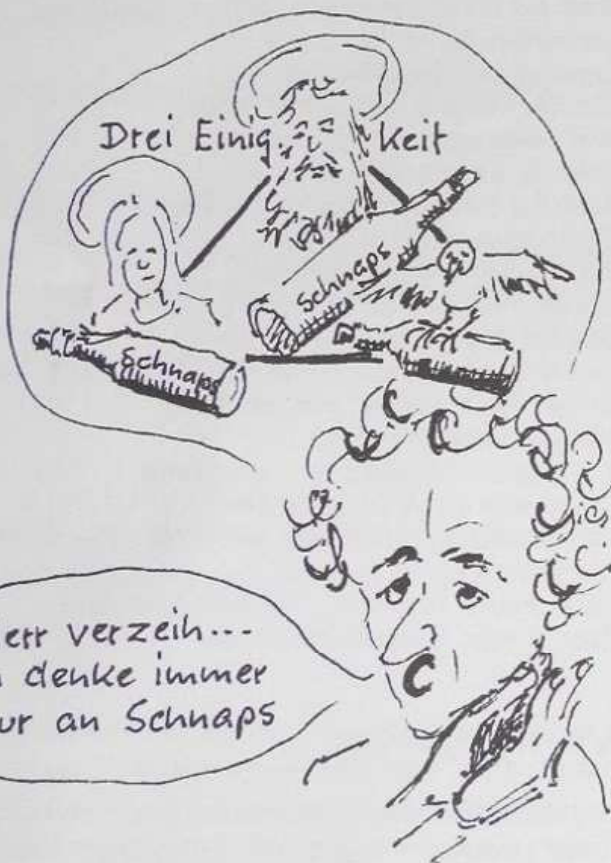 Drei Einig keit
Schnaps
Schnaps
err verzeih...
h denke immer
ur an Schnaps